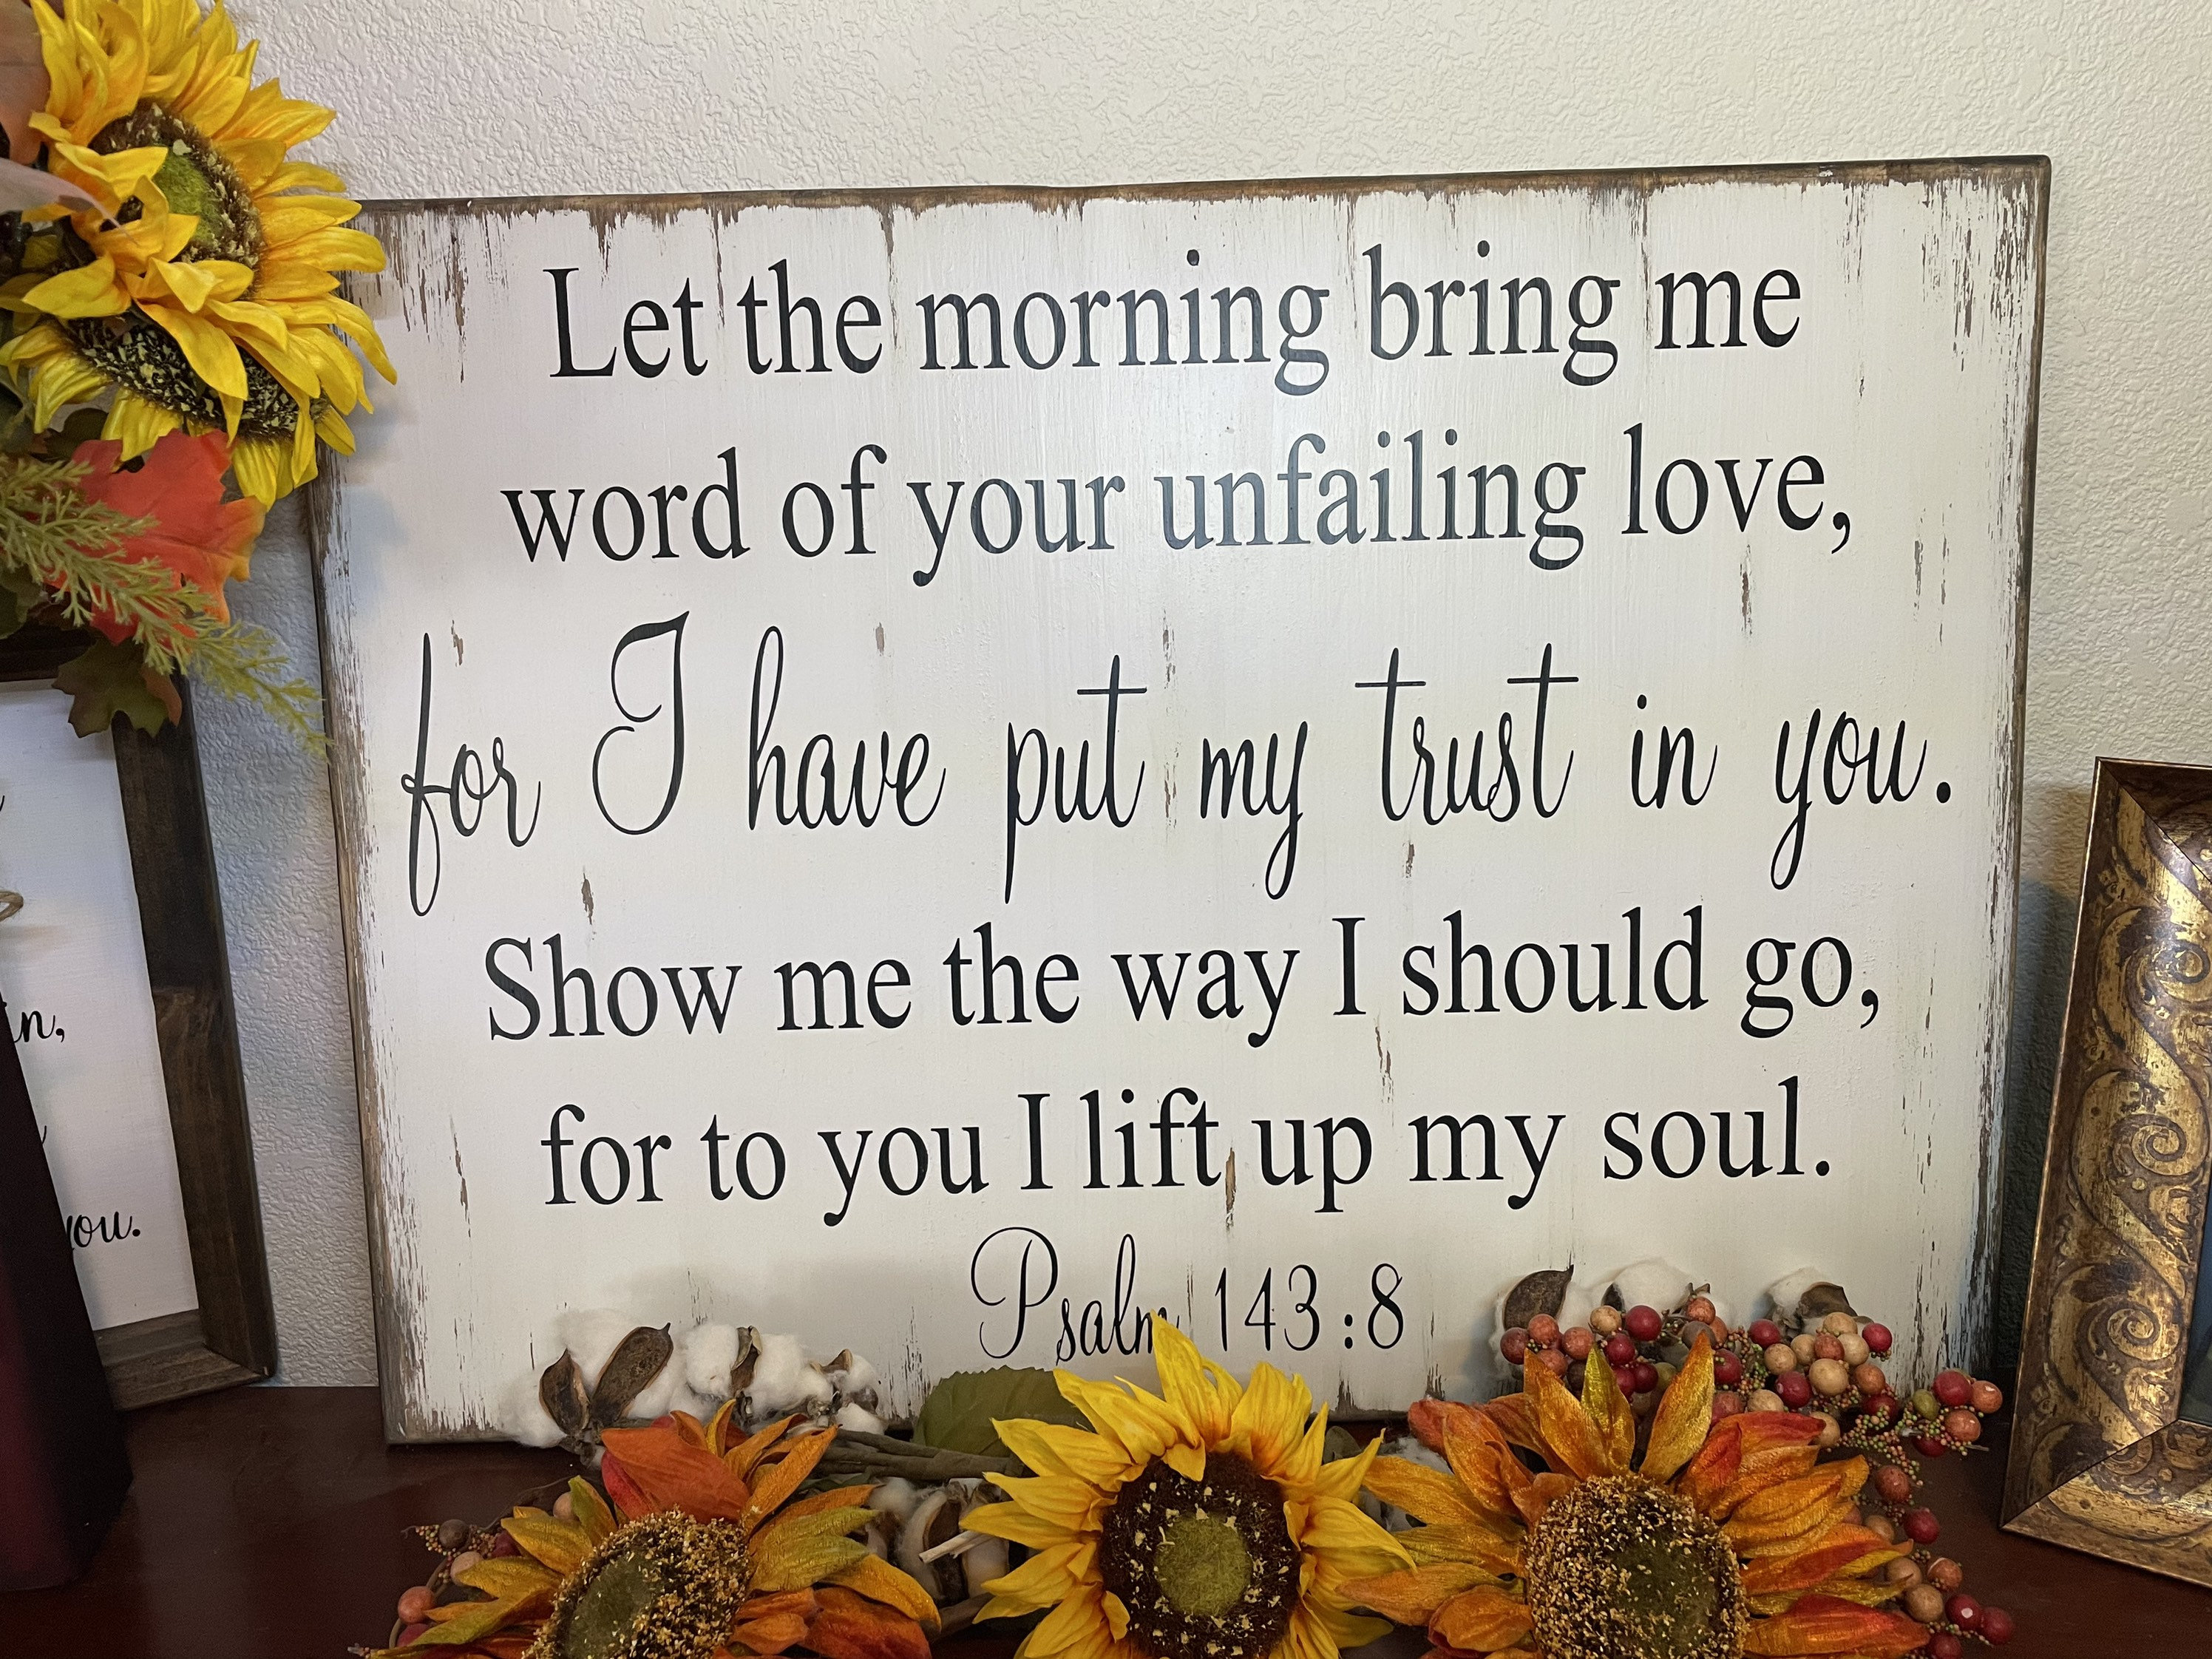 Let the morning bring me
word of your unfailing love,
for I have put my trust in you.
Show me the way I should go,
for to you I lift up my soul.
Psalm 143:8
you.